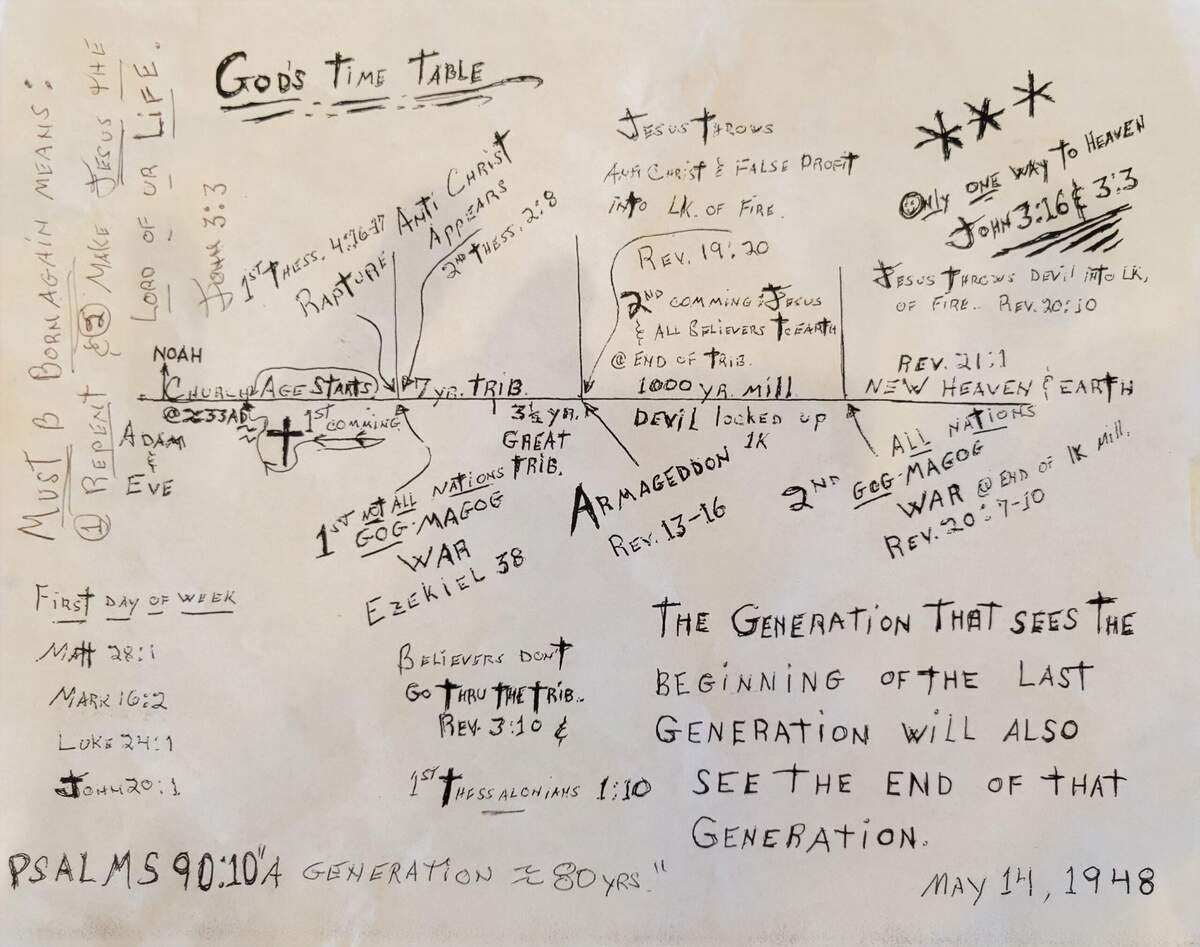 GOD'S TIME TABLE
MUST B BORN AGAIN MEANS:
① REPENT & ② MAKE JESUS THE
LORD OF UR LIFE.
JOHN 3:3
1ST THESS. 4:16-17
RAPTURE
ANTI CHRIST
APPEARS
2ND THESS. 2:8
JESUS THROWS
ANTI CHRIST & FALSE PROFIT
INTO LK. OF FIRE.
REV. 19:20
2ND COMMING: JESUS
& ALL BELIEVERS TO EARTH
@ END OF TRIB.
ONLY ONE WAY TO HEAVEN
JOHN 3:16 & 3:3
JESUS THROWS DEVIL INTO LK,
OF FIRE.. REV. 20:10
REV. 21:1
NEW HEAVEN & EARTH
NOAH
CHURCH AGE STARTS
@≈33AD
7 YR. TRIB.
1000 YR. MILL
1ST
COMMING
3½ YR.
GREAT
TRIB.
DEVIL LOCKED UP
1K
ADAM
&
EVE
1ST NOT ALL NATIONS
GOG-MAGOG
WAR
EZEKIEL 38
ARMAGEDDON
REV. 13-16
2ND ALL NATIONS
GOG-MAGOG
WAR @ END OF 1K MILL.
REV. 20:7-10
FIRST DAY OF WEEK
MATT 28:1
MARK 16:2
LUKE 24:1
JOHN 20:1
BELIEVERS DON'T
GO THRU THE TRIB..
REV. 3:10 &
1ST THESSALONIANS 1:10
THE GENERATION THAT SEES THE
BEGINNING OF THE LAST
GENERATION WILL ALSO
SEE THE END OF THAT
GENERATION.
PSALMS 90:10 "A GENERATION ≈ 80 YRS."
MAY 14, 1948